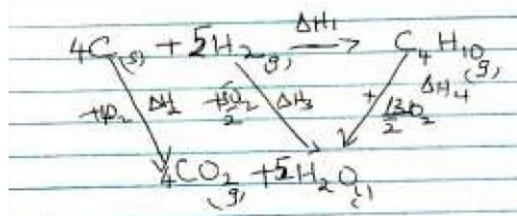 ΔH₁
4C(s) + 5H₂(g) → C₄H₁₀(g)
+4O₂ ΔH₂ +5O₂/2 ΔH₃ + 13/2 O₂ ΔH₄
4CO₂(g) + 5H₂O(l)